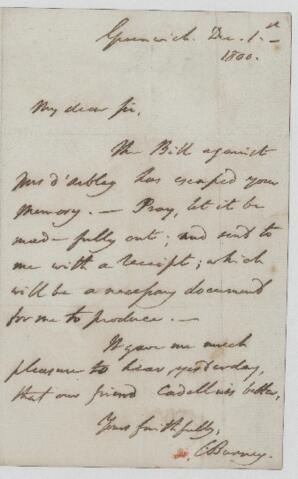 Greenwich. Dec. 1.st
1800.
My dear Sir,
The Bill against
Mrs d'Arblay has escaped your
Memory. — Pray, let it be
made fully out; and sent to
me with a receipt; which
will be a necessary document
for me to produce. —
It gave me much
pleasure to hear, yesterday,
that our friend Cadell was better,
Yours faithfully,
C Burney.